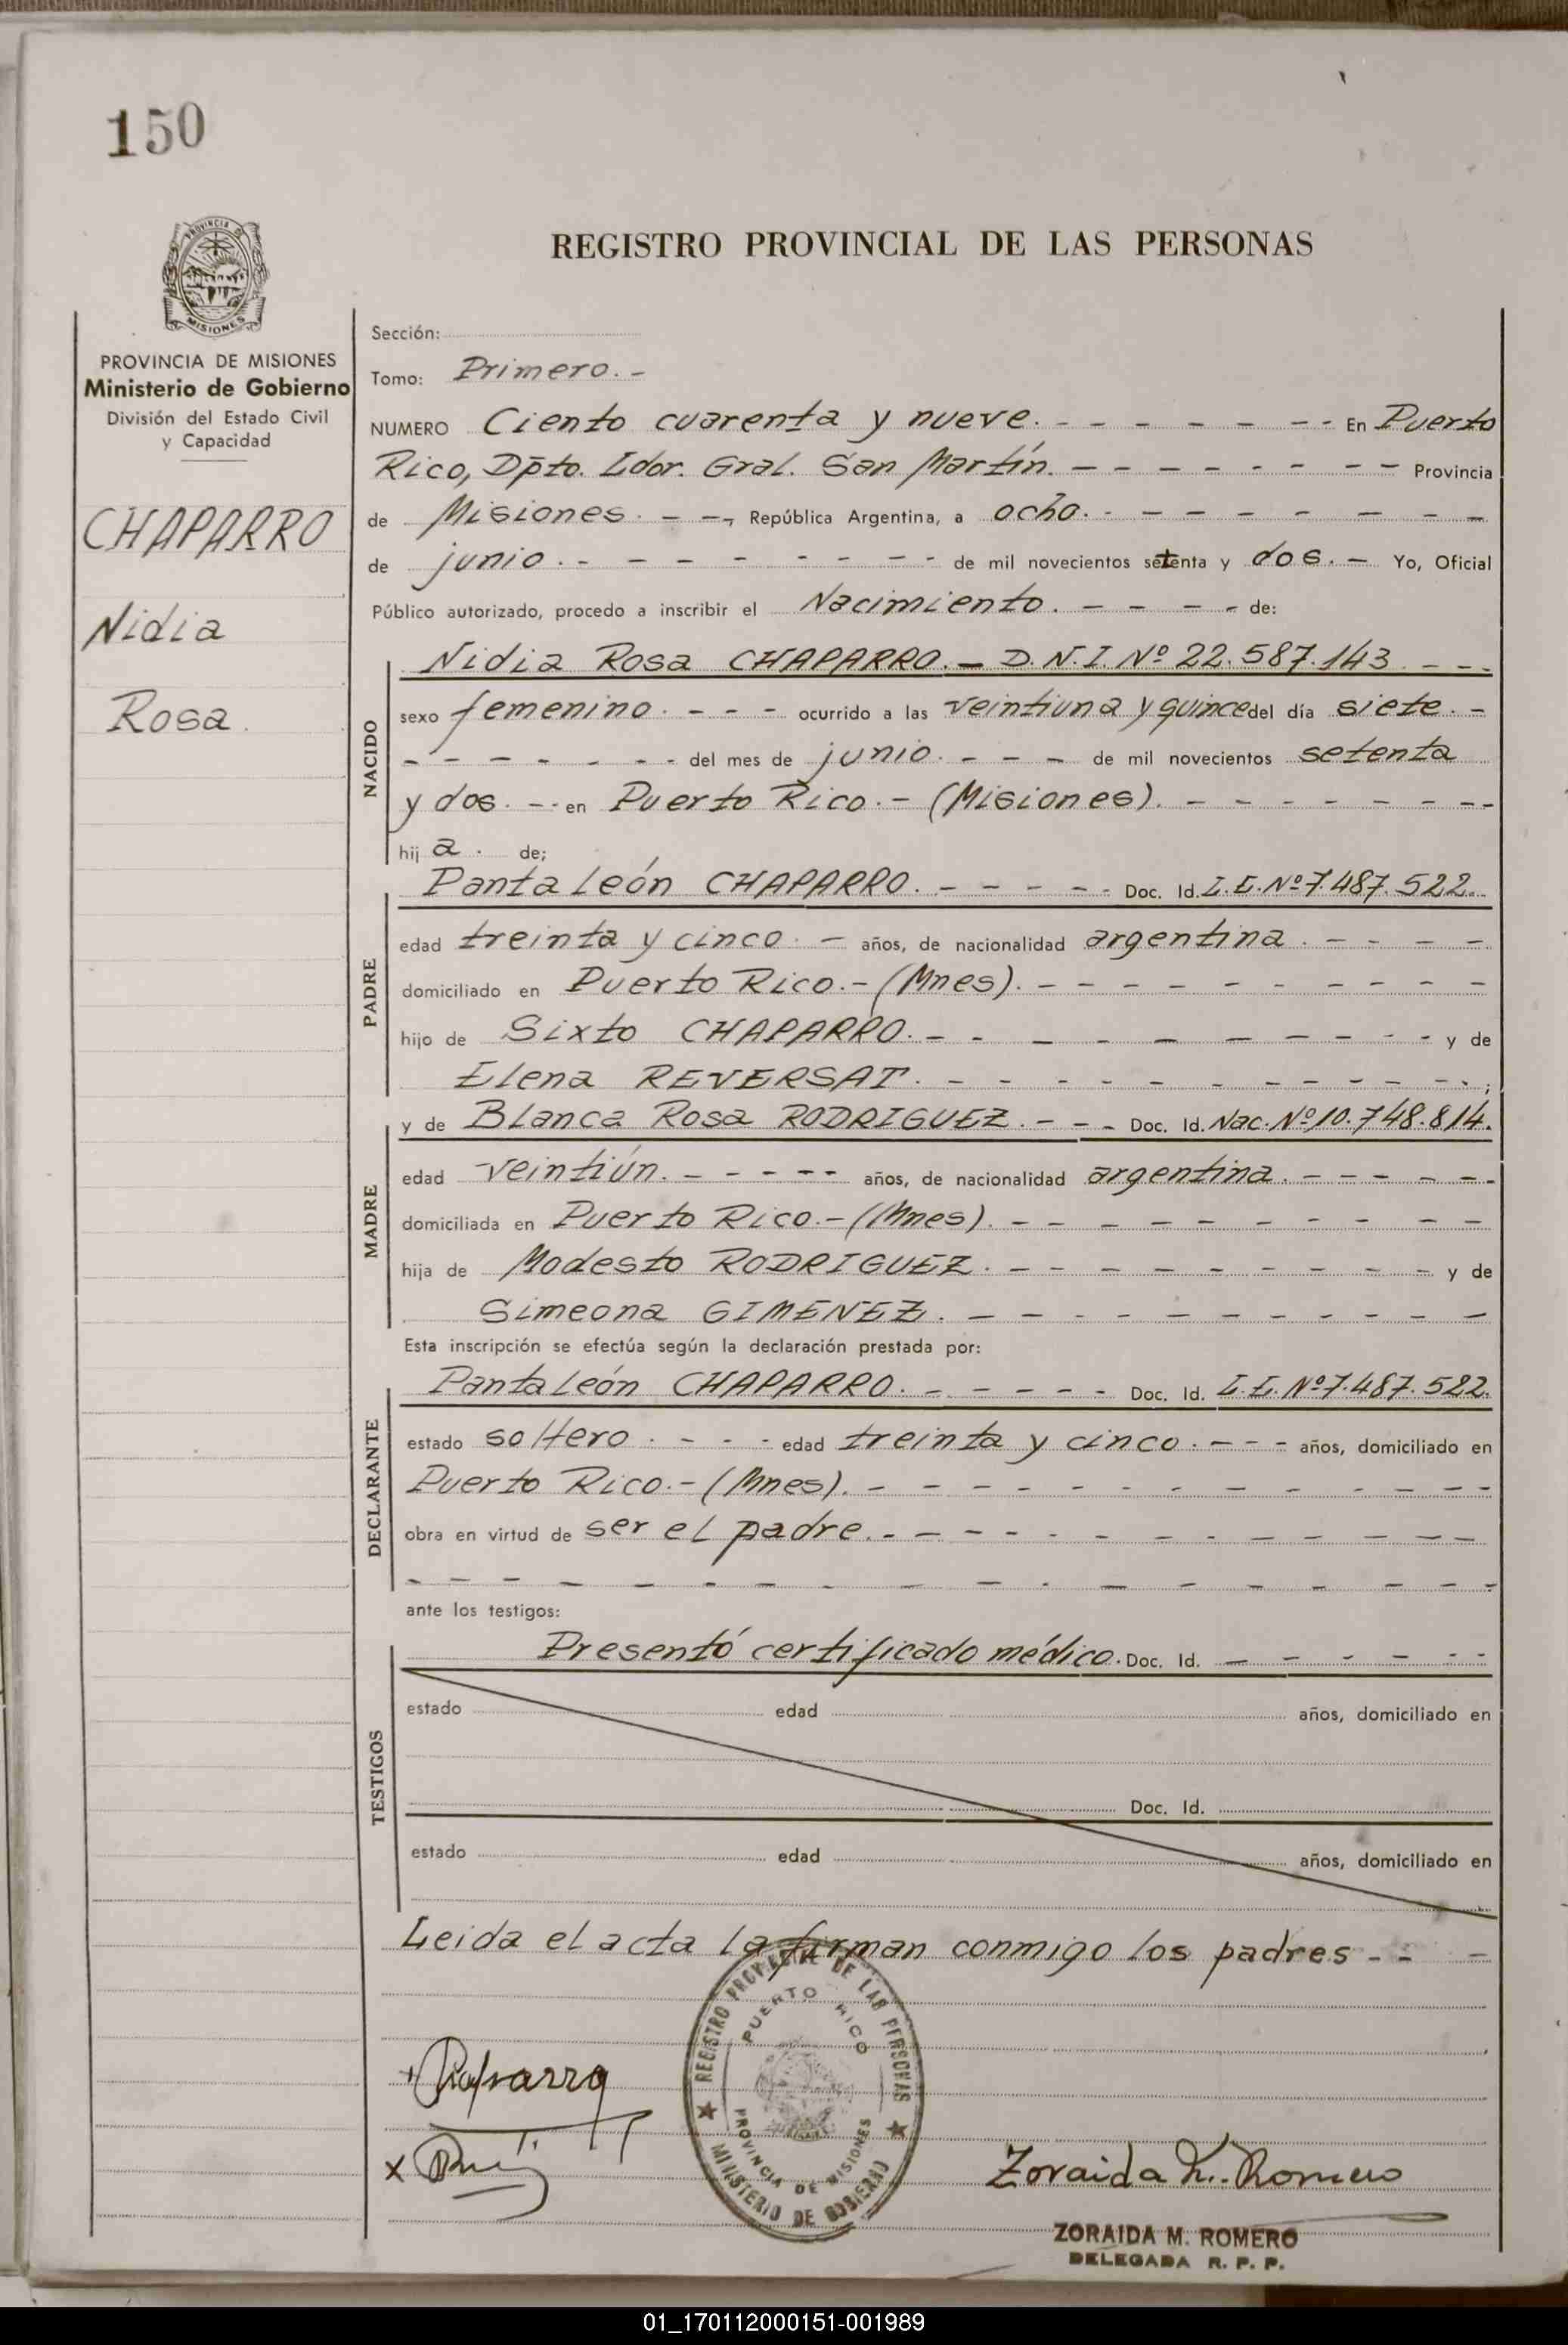 150
PROVINCIA DE
MISIONES
REGISTRO PROVINCIAL DE LAS PERSONAS
PROVINCIA DE MISIONES
Ministerio de Gobierno
División del Estado Civil
y Capacidad
CHAPARRO
Nidia
Rosa.
Sección:
Tomo: Primero.-
NUMERO Ciento cuarenta y nueve. - - - - - - - En Puerto
Rico, Dpto. Ldor. Gral. San Martín. - - - - - - - - Provincia
de Misiones. - -, República Argentina, a ocho. - - - - - - - - -
de junio. - - - - - - - - - de mil novecientos setenta y dos. - Yo, Oficial
Público autorizado, procedo a inscribir el Nacimiento. - - - - de:
Nidia Rosa CHAPARRO. - D.N.I. Nº 22.587.143 - - -
NACIDO
sexo femenino. - - - ocurrido a las veintiuna y quince del día siete. -
- - - - - - - del mes de junio. - - - de mil novecientos setenta
y dos. - - en Puerto Rico. - (Misiones). - - - - - - - -
hij a. de;
Pantaleón CHAPARRO. - - - - - Doc. Id. L.E. Nº 7.487.522.
PADRE
edad treinta y cinco. - años, de nacionalidad argentina. - - - -
domiciliado en Puerto Rico. - (Mnes). - - - - - - - - - -
hijo de Sixto CHAPARRO. - - - - - - - - - - y de
Elena REVERSAT. - - - - - - - - - - - - ;
y de Blanca Rosa RODRIGUEZ. - - - Doc. Id. Nac. Nº 10.748.814.
MADRE
edad veintiún. - - - - - años, de nacionalidad argentina. - - - - - -
domiciliada en Puerto Rico. - (Mnes). - - - - - - - - - -
hija de Modesto RODRIGUEZ. - - - - - - - - - - y de
Simeona GIMENEZ. - - - - - - - - - - -
Esta inscripción se efectúa según la declaración prestada por:
Pantaleón CHAPARRO. - - - - - Doc. Id. L.E. Nº 7.487.522.
DECLARANTE
estado soltero. - - - edad treinta y cinco. - - - años, domiciliado en
Puerto Rico. - (Mnes). - - - - - - - - - - - - -
obra en virtud de ser el padre. - - - - - - - - - - - - -
- - - - - - - - - - - - - - - - - -
ante los testigos:
Presentó certificado médico. Doc. Id. - - - - - -
TESTIGOS
estado edad años, domiciliado en
Doc. Id.
estado edad años, domiciliado en
Leida el acta la firman conmigo los padres - - -
REGISTRO PROVINCIAL DE LAS PERSONAS
PUERTO RICO
PROVINCIA DE MISIONES
MINISTERIO DE GOBIERNO
Zoraida M. Romero
ZORAIDA M. ROMERO
DELEGADA R. P. P.
01_170112000151-001989